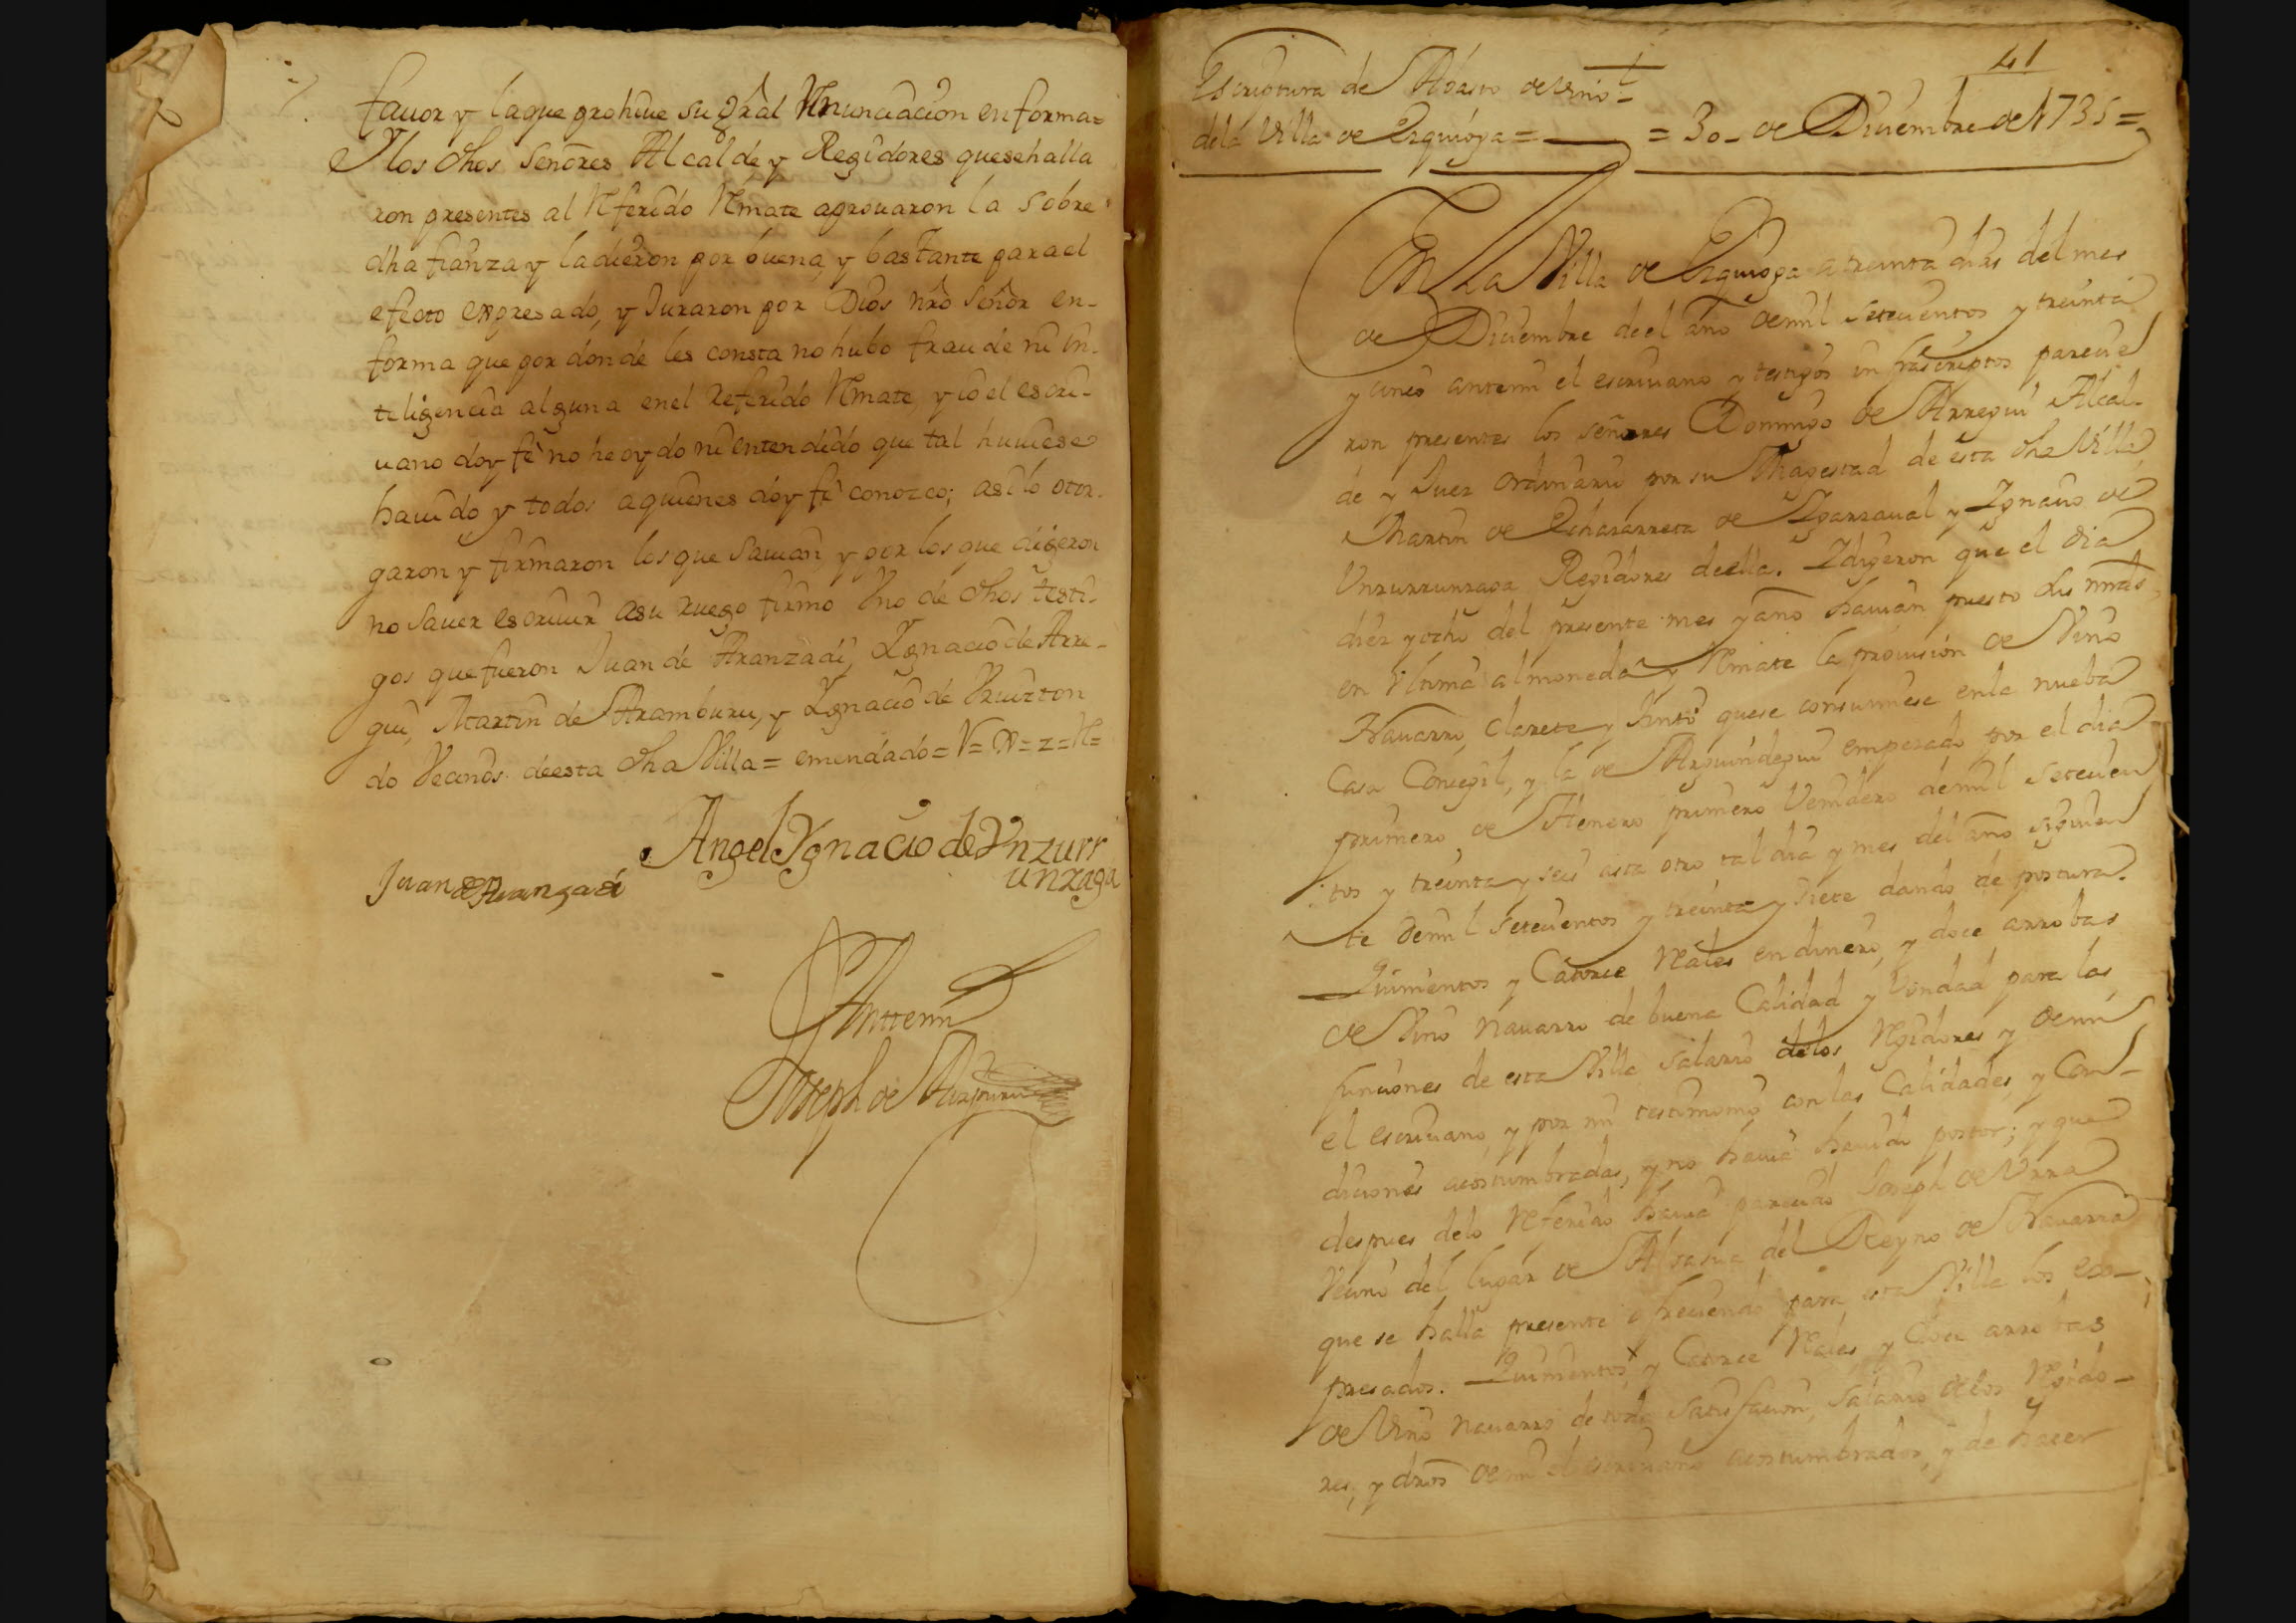 fauor y la que prohiue su gral Renunciacion en forma=
Y los dhos Señores Alcalde y Regidores que se halla
ron presentes al Referido Rmate aprouaron la sobre
dha fianza y la dieron por buena, y bastante para el
efecto expresado, y Juraron por Dios nro Señor en-
forma que por donde les consta no hubo fraude ni in-
teligencia alguna en el Referido Rmate, y io el escri-
uano doy fè no he oydo ni entendido que tal huuiese
hauido y todos a quienes doy fè conozco; asi lo otor-
garon y firmaron los que Sauian y por los que digeron
no Sauer escriuir asu ruego firmo Vno de dhos testi-
gos que fueron Juan de Aranzadi, Ygnacio de Arre-
gui, Martin de Aramburu, y Ygnacio de Vruizton
do Vecinos de esta dha Villa = emendado = V= x = z = R=
Angel Ygnacio de Ynzurr
unzaga
Juan de Aranzadi
Antemi
Joseph de
41
Escriptura de Abasto de Vino
de la Villa de Ezquioga = = 30- de Diciembre de 1735 =
En La Villa de Ezquioga a treinta dias del mes
de Diciembre de el año de mil setecientos y treinta
y cinco antemi el escriuano y testigos infrascriptos parecie
ron presentes los señores Domingo de Arregui Alcal-
de y Juez ordinario por su Magestad de esta dha Villa
Martin de Echazarreta de Ygarzaual y Ygnacio de
Vnzurrunzaga Regidores de ella. Y digeron que el dia
diez y ocho del presente mes y año hauian puesto sus mrds
en vltima almoneda y Rmate la prouision de Vino
Nauarro, clarete y tinto que se consumiese en la nueba
Casa Concegil, y la de Arguindegui empezado por el dia
primero de Henero primero Venidero de mil setecien
tos y treinta y seis asta otro tal dia y mes del año siguien
te de mil setecientos y treinta y siete dando de postura
Quinientos y Catorce Rales en dinero, y doce arrobas
de Vino nauarro de buena Calidad y bondad para las
funciones de esta Villa salario de los Rgidores y de mi
el escriuano, y por mi testimonio con las Calidades, y Con-
diciones acostumbradas, y no hauia hauido postor; y que
despues de lo Referido hauia parecido Joseph de Vrra
Vecino del lugar de Alsasua del Reyno de Nauarra
que se halla presente ofreciendo para esta Villa los ex-
presados. Quinientos y Catorce Rales y doce arrobas
de Vino nauarro de toda satisfacion, salario de los Rgido-
res, y dros de mi el escriuano acostumbrados, y de hacer